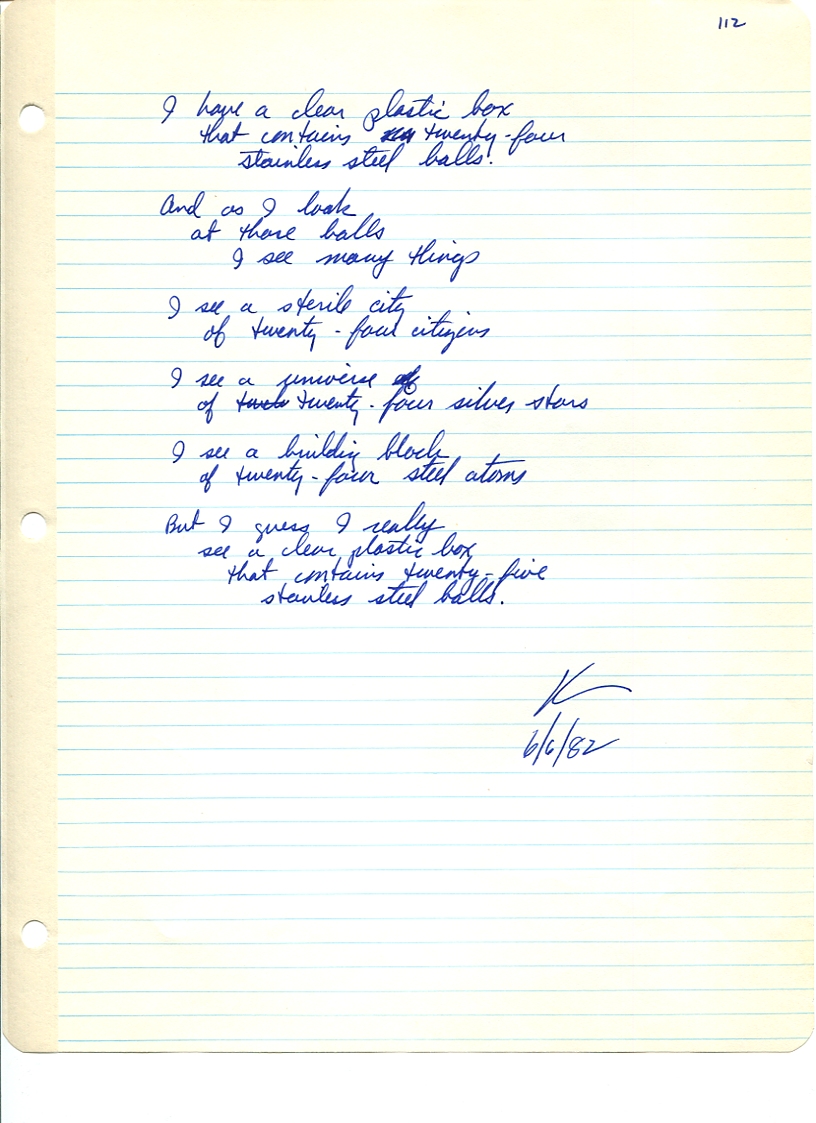 112
I have a clear plastic box
that contains twenty-four
stainless steel balls.
And as I look
at those balls
I see many things
I see a sterile city
of twenty-four citizens
I see a universe of
of twelv twenty-four silver stars
I see a building block
of twenty-four steel atoms
But I guess I really
see a clear plastic box
that contains twenty-five
stainless steel balls.
K
6/6/82